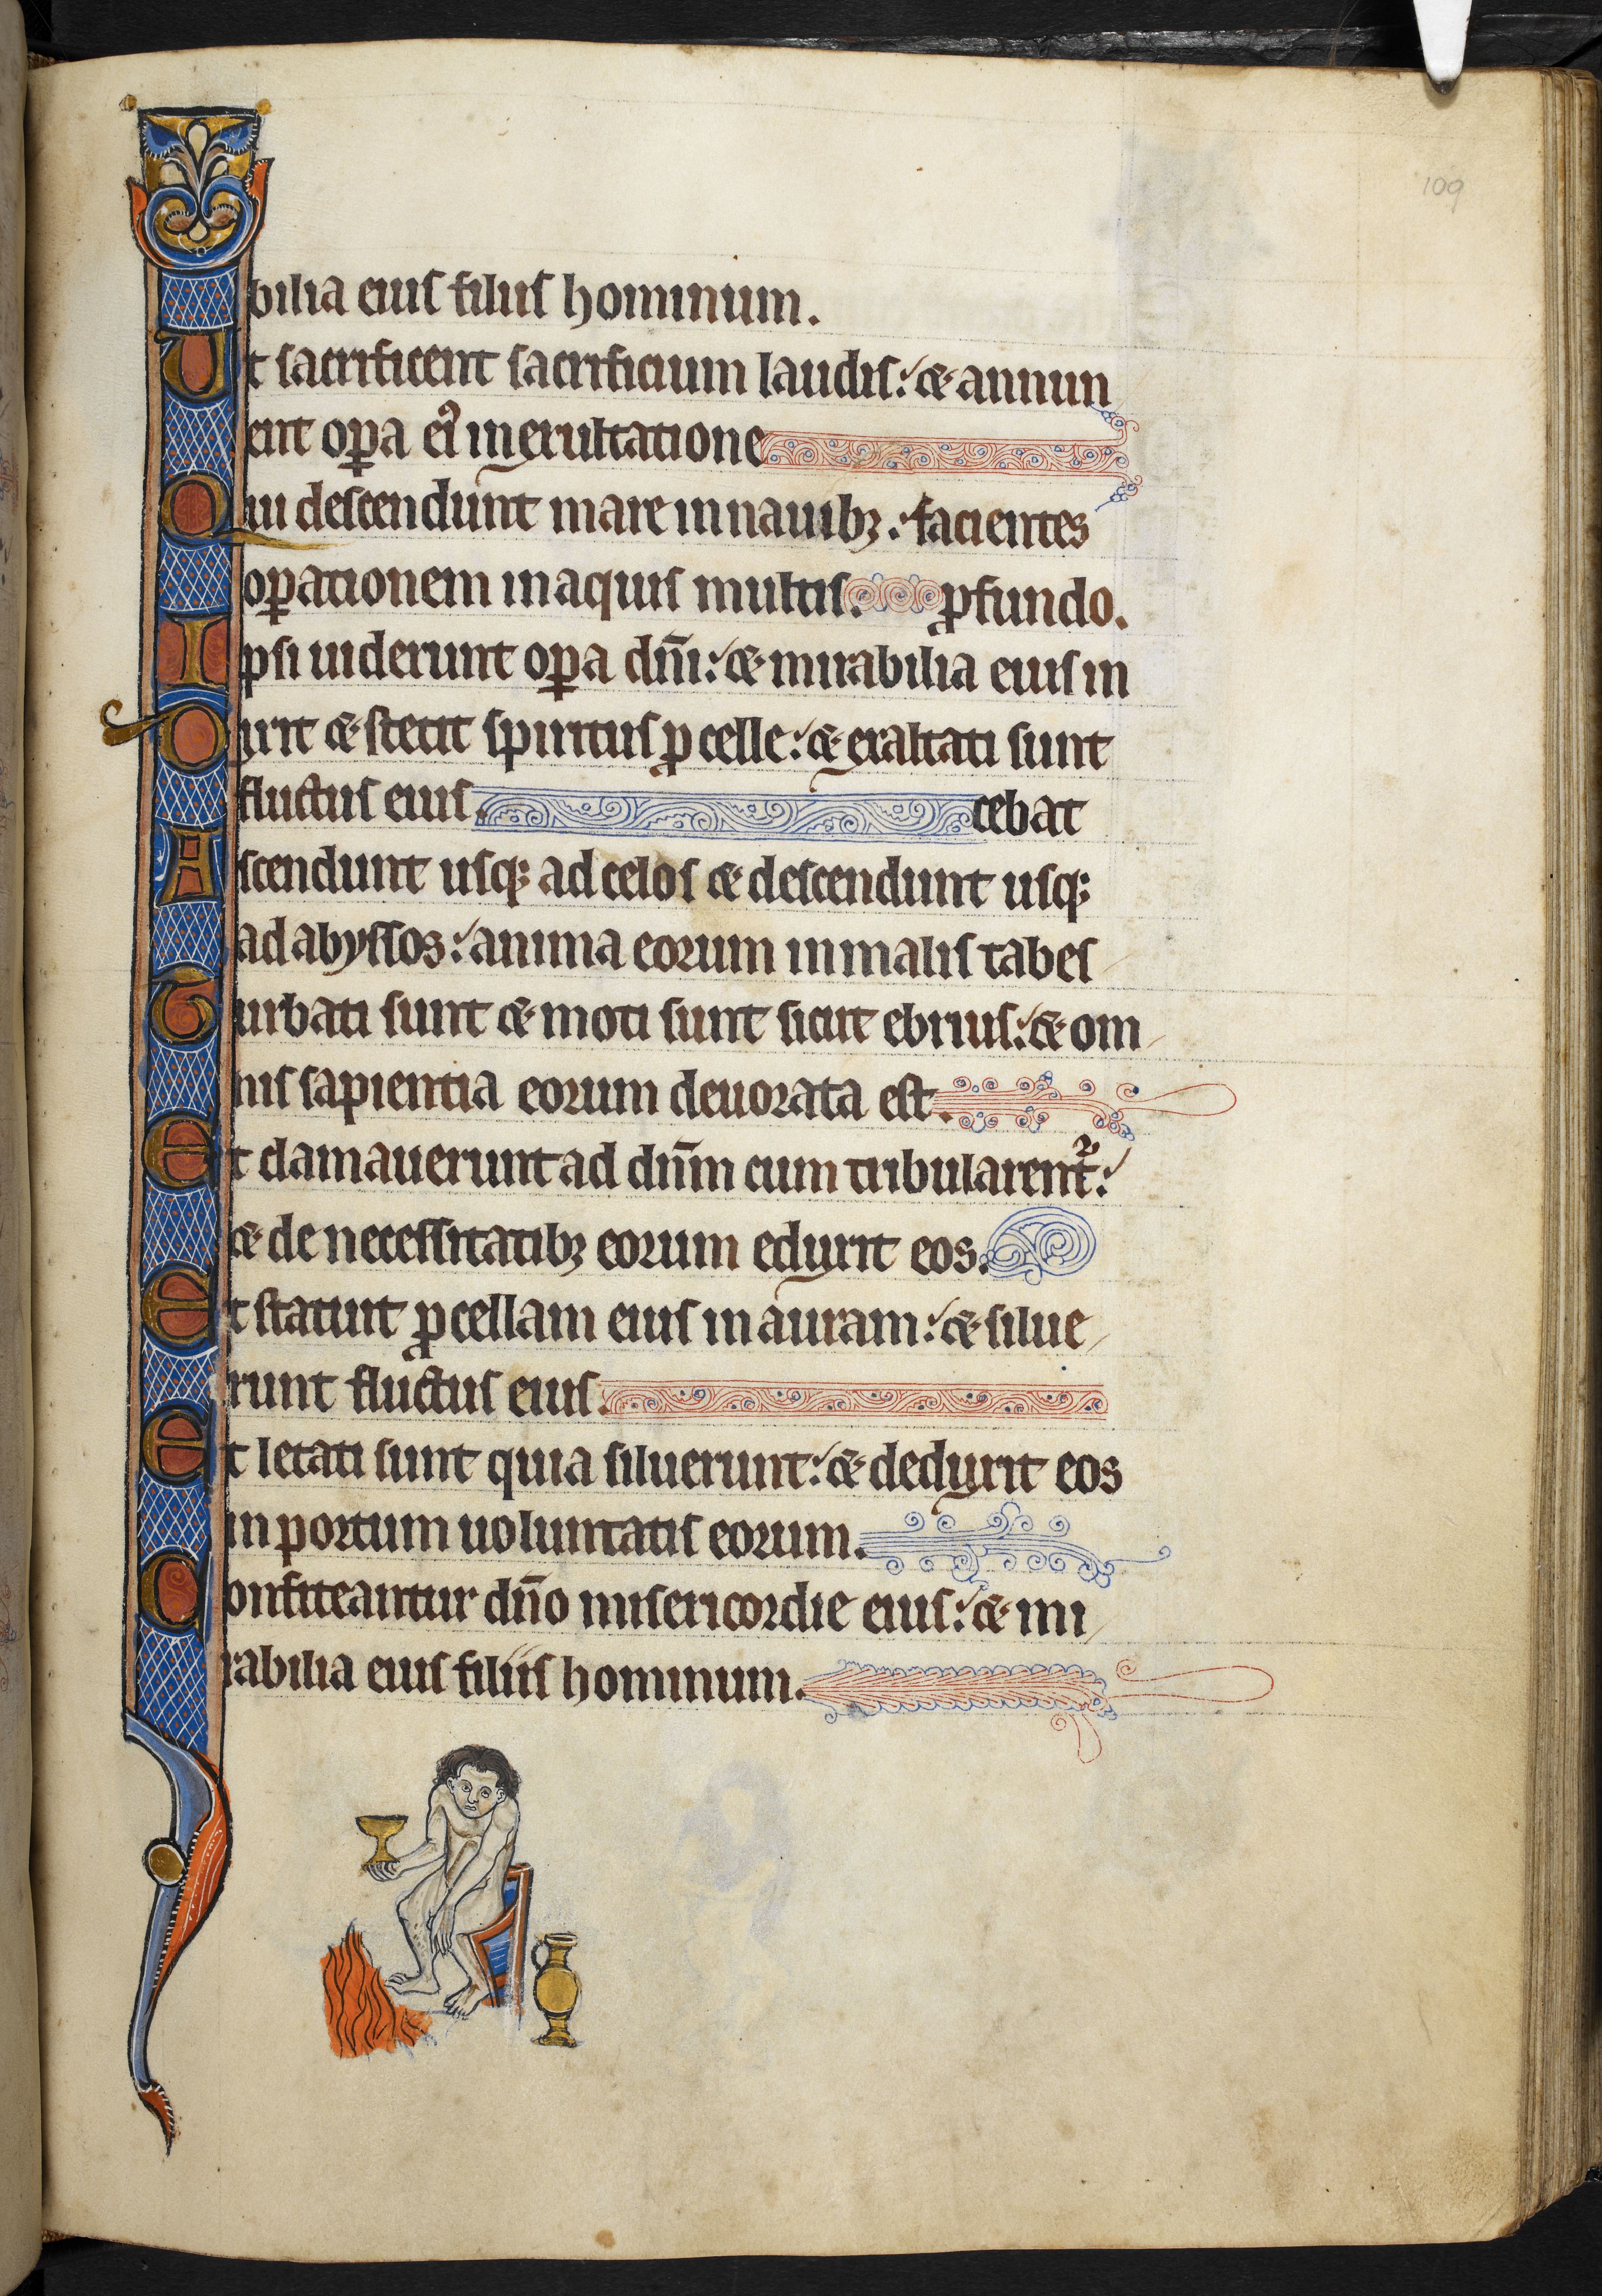 109
bilia eius filiis hominum.
Ut sacrificent sacrificium laudis: ⁊ annun
ent oꝑa eiꝰ in exultatione
Qui descendunt mare in nauibꝫ: facientes
oꝑationem in aquis multis. ꝓfundo.
Ipsi uiderunt oꝑa dn̄i: ⁊ mirabilia eius in
Dixit ⁊ stetit spiritus ꝓcelle: ⁊ exaltati sunt
fluctus eius. cebat
Ascendunt usqꝫ ad celos ⁊ descendunt usqꝫ
ad abyssos: anima eorum in malis tabes
Turbati sunt ⁊ moti sunt sicut ebrius: ⁊ om
nis sapientia eorum deuorata est.
Et clamauerunt ad dn̄m cum tribularent᷑:
⁊ de necessitatibꝫ eorum eduxit eos.
Et statuit ꝓcellam eius in auram: ⁊ silue
runt fluctus eius.
Et letati sunt quia siluerunt: ⁊ deduxit eos
in portum uoluntatis eorum.
Confiteantur dn̄o misericordie eius: ⁊ mi
rabilia eius filiis hominum.